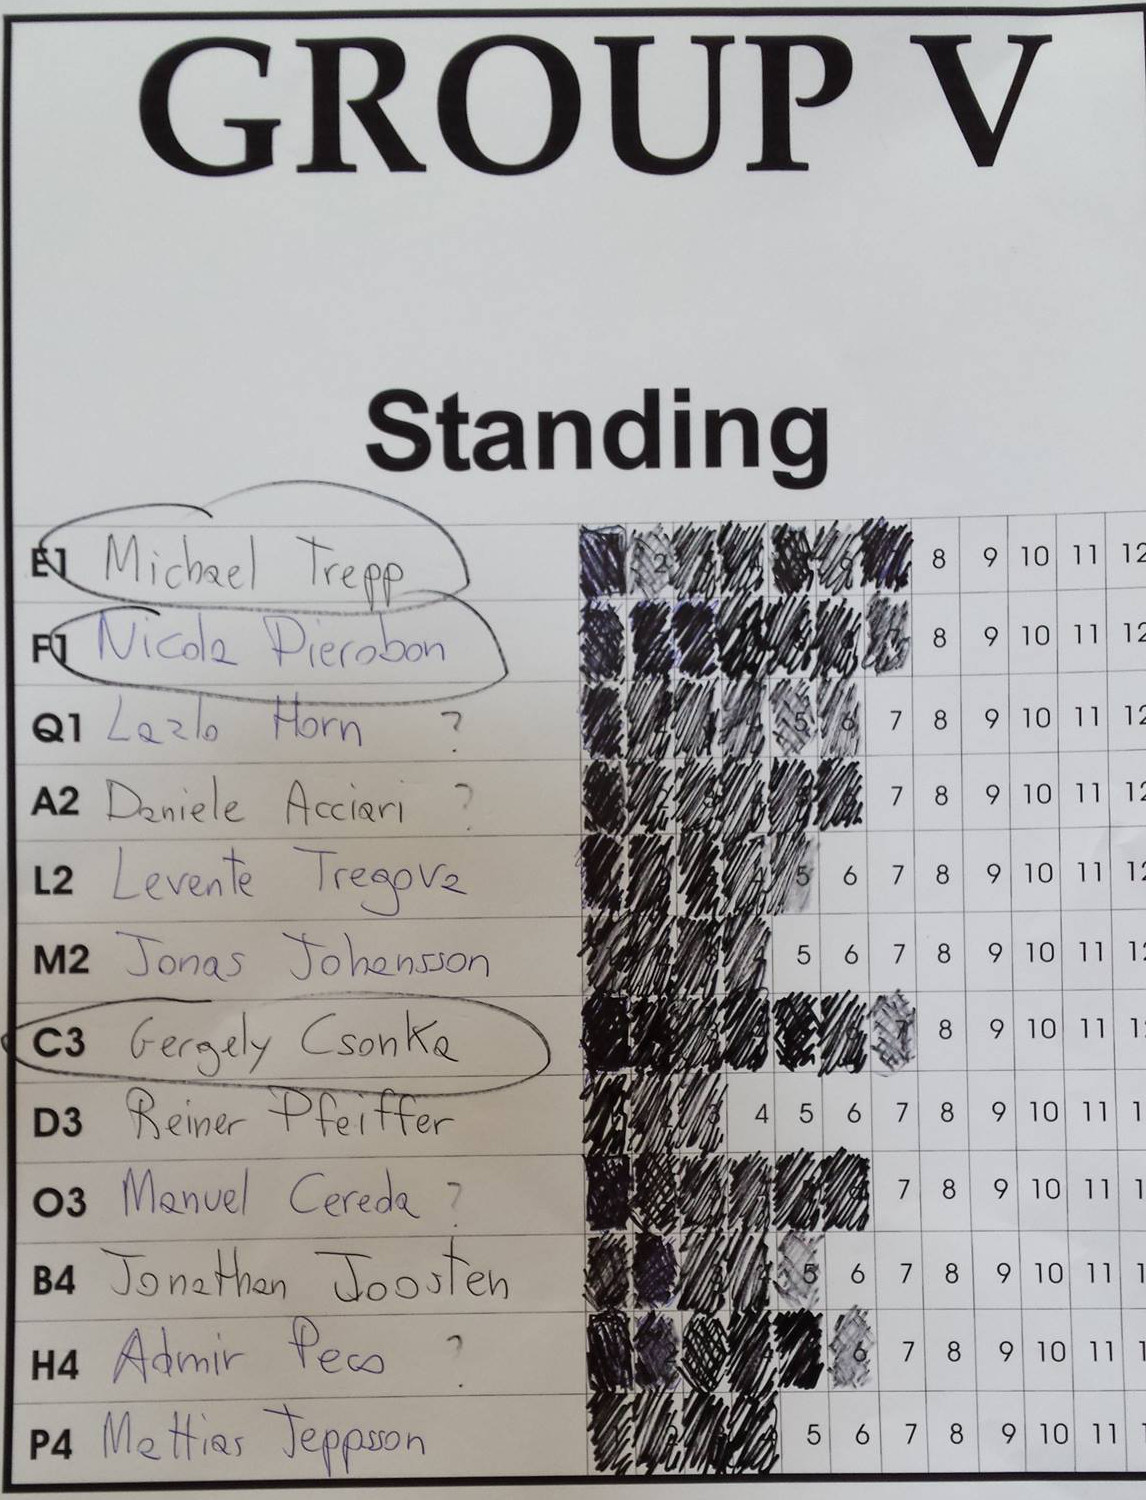 GROUP V
Standing
E1 Michael Trepp 2 8 9 10 11 12
F1 Nicola Pierobon 7 8 9 10 11 12
Q1 Lazlo Horn ? 4 5 6 7 8 9 10 11 12
A2 Daniele Acciari ? 2 7 8 9 10 11 12
L2 Levente Tregova 4 5 6 7 8 9 10 11 12
M2 Jonas Johansson 5 6 7 8 9 10 11 12
C3 Gergely Csonka 7 8 9 10 11
D3 Reiner Pfeiffer 2 3 4 5 6 7 8 9 10 11
O3 Manuel Cereda ? 7 8 9 10 11
B4 Jonathan Joosten 5 6 7 8 9 10 11
H4 Admir Peco ? 6 7 8 9 10 11
P4 Mattias Jeppsson 5 6 7 8 9 10 11